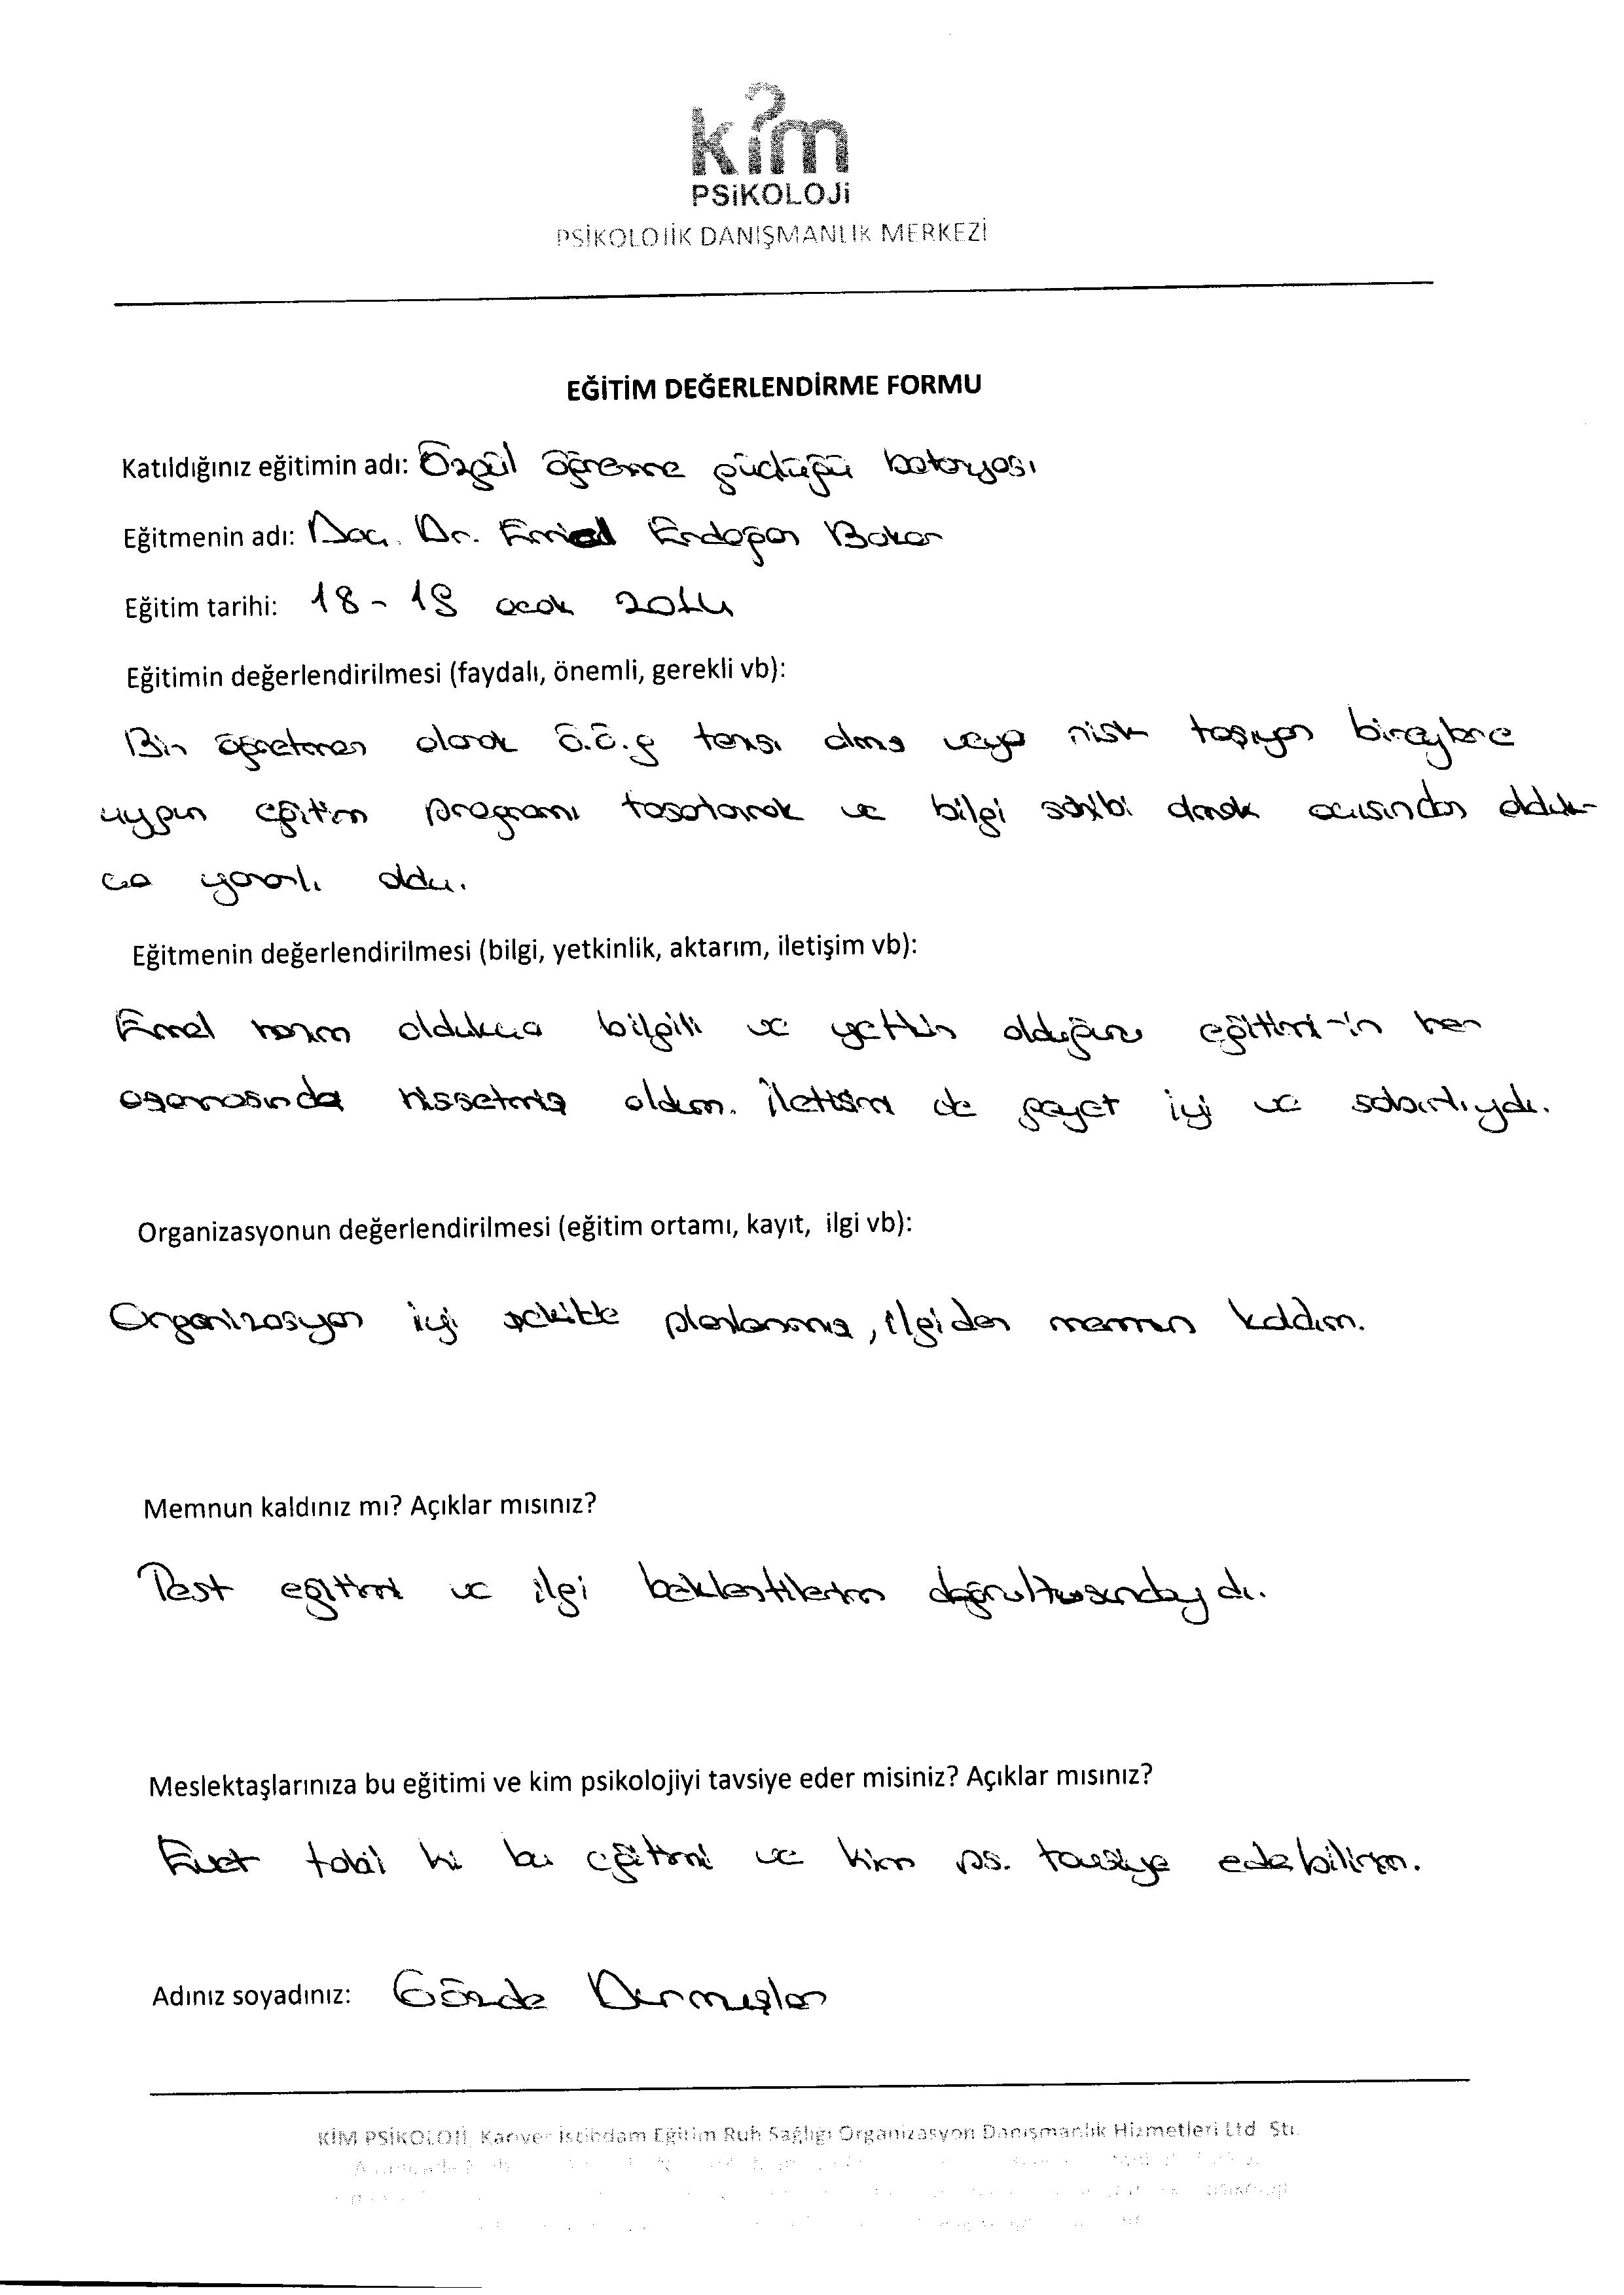 kim
PSiKOLOJi
PSİKOLOJİK DANIŞMANLIK MERKEZİ
EĞİTİM DEĞERLENDİRME FORMU
Katıldığınız eğitimin adı: Özgül öğrenme güçlüğü bataryası
Eğitmenin adı: Doç. Dr. Emel Erdoğan Bakar
Eğitim tarihi: 18 - 19 ocak 2014
Eğitimin değerlendirilmesi (faydalı, önemli, gerekli vb):
Bir öğretmen olarak ö.ö.g tanısı almış veya risk taşıyan bireylere
uygun eğitim programı tasarlamak ve bilgi sahibi olmak açısından olduk-
ça yararlı oldu.
Eğitmenin değerlendirilmesi (bilgi, yetkinlik, aktarım, iletişim vb):
Emel hanım oldukça bilgili ve yetkin olduğunu eğitimi-in her
aşamasında hissetmiş oldum. İletişimi de gayet iyi ve sabırlıydı.
Organizasyonun değerlendirilmesi (eğitim ortamı, kayıt, ilgi vb):
Organizasyon iyi şekilde planlanmış, ilgiden memnun kaldım.
Memnun kaldınız mı? Açıklar mısınız?
Test eğitimi ve ilgi beklentilerim doğrultusundaydı.
Meslektaşlarınıza bu eğitimi ve kim psikolojiyi tavsiye eder misiniz? Açıklar mısınız?
Evet tabii ki bu eğitimi ve kim ps. tavsiye edebilirim.
Adınız soyadınız: Gözde Durmuşlar
KİM PSİKOLOJİ Kariyer İstihdam Eğitim Ruh Sağlığı Organizasyon Danışmanlık Hizmetleri Ltd Sti.